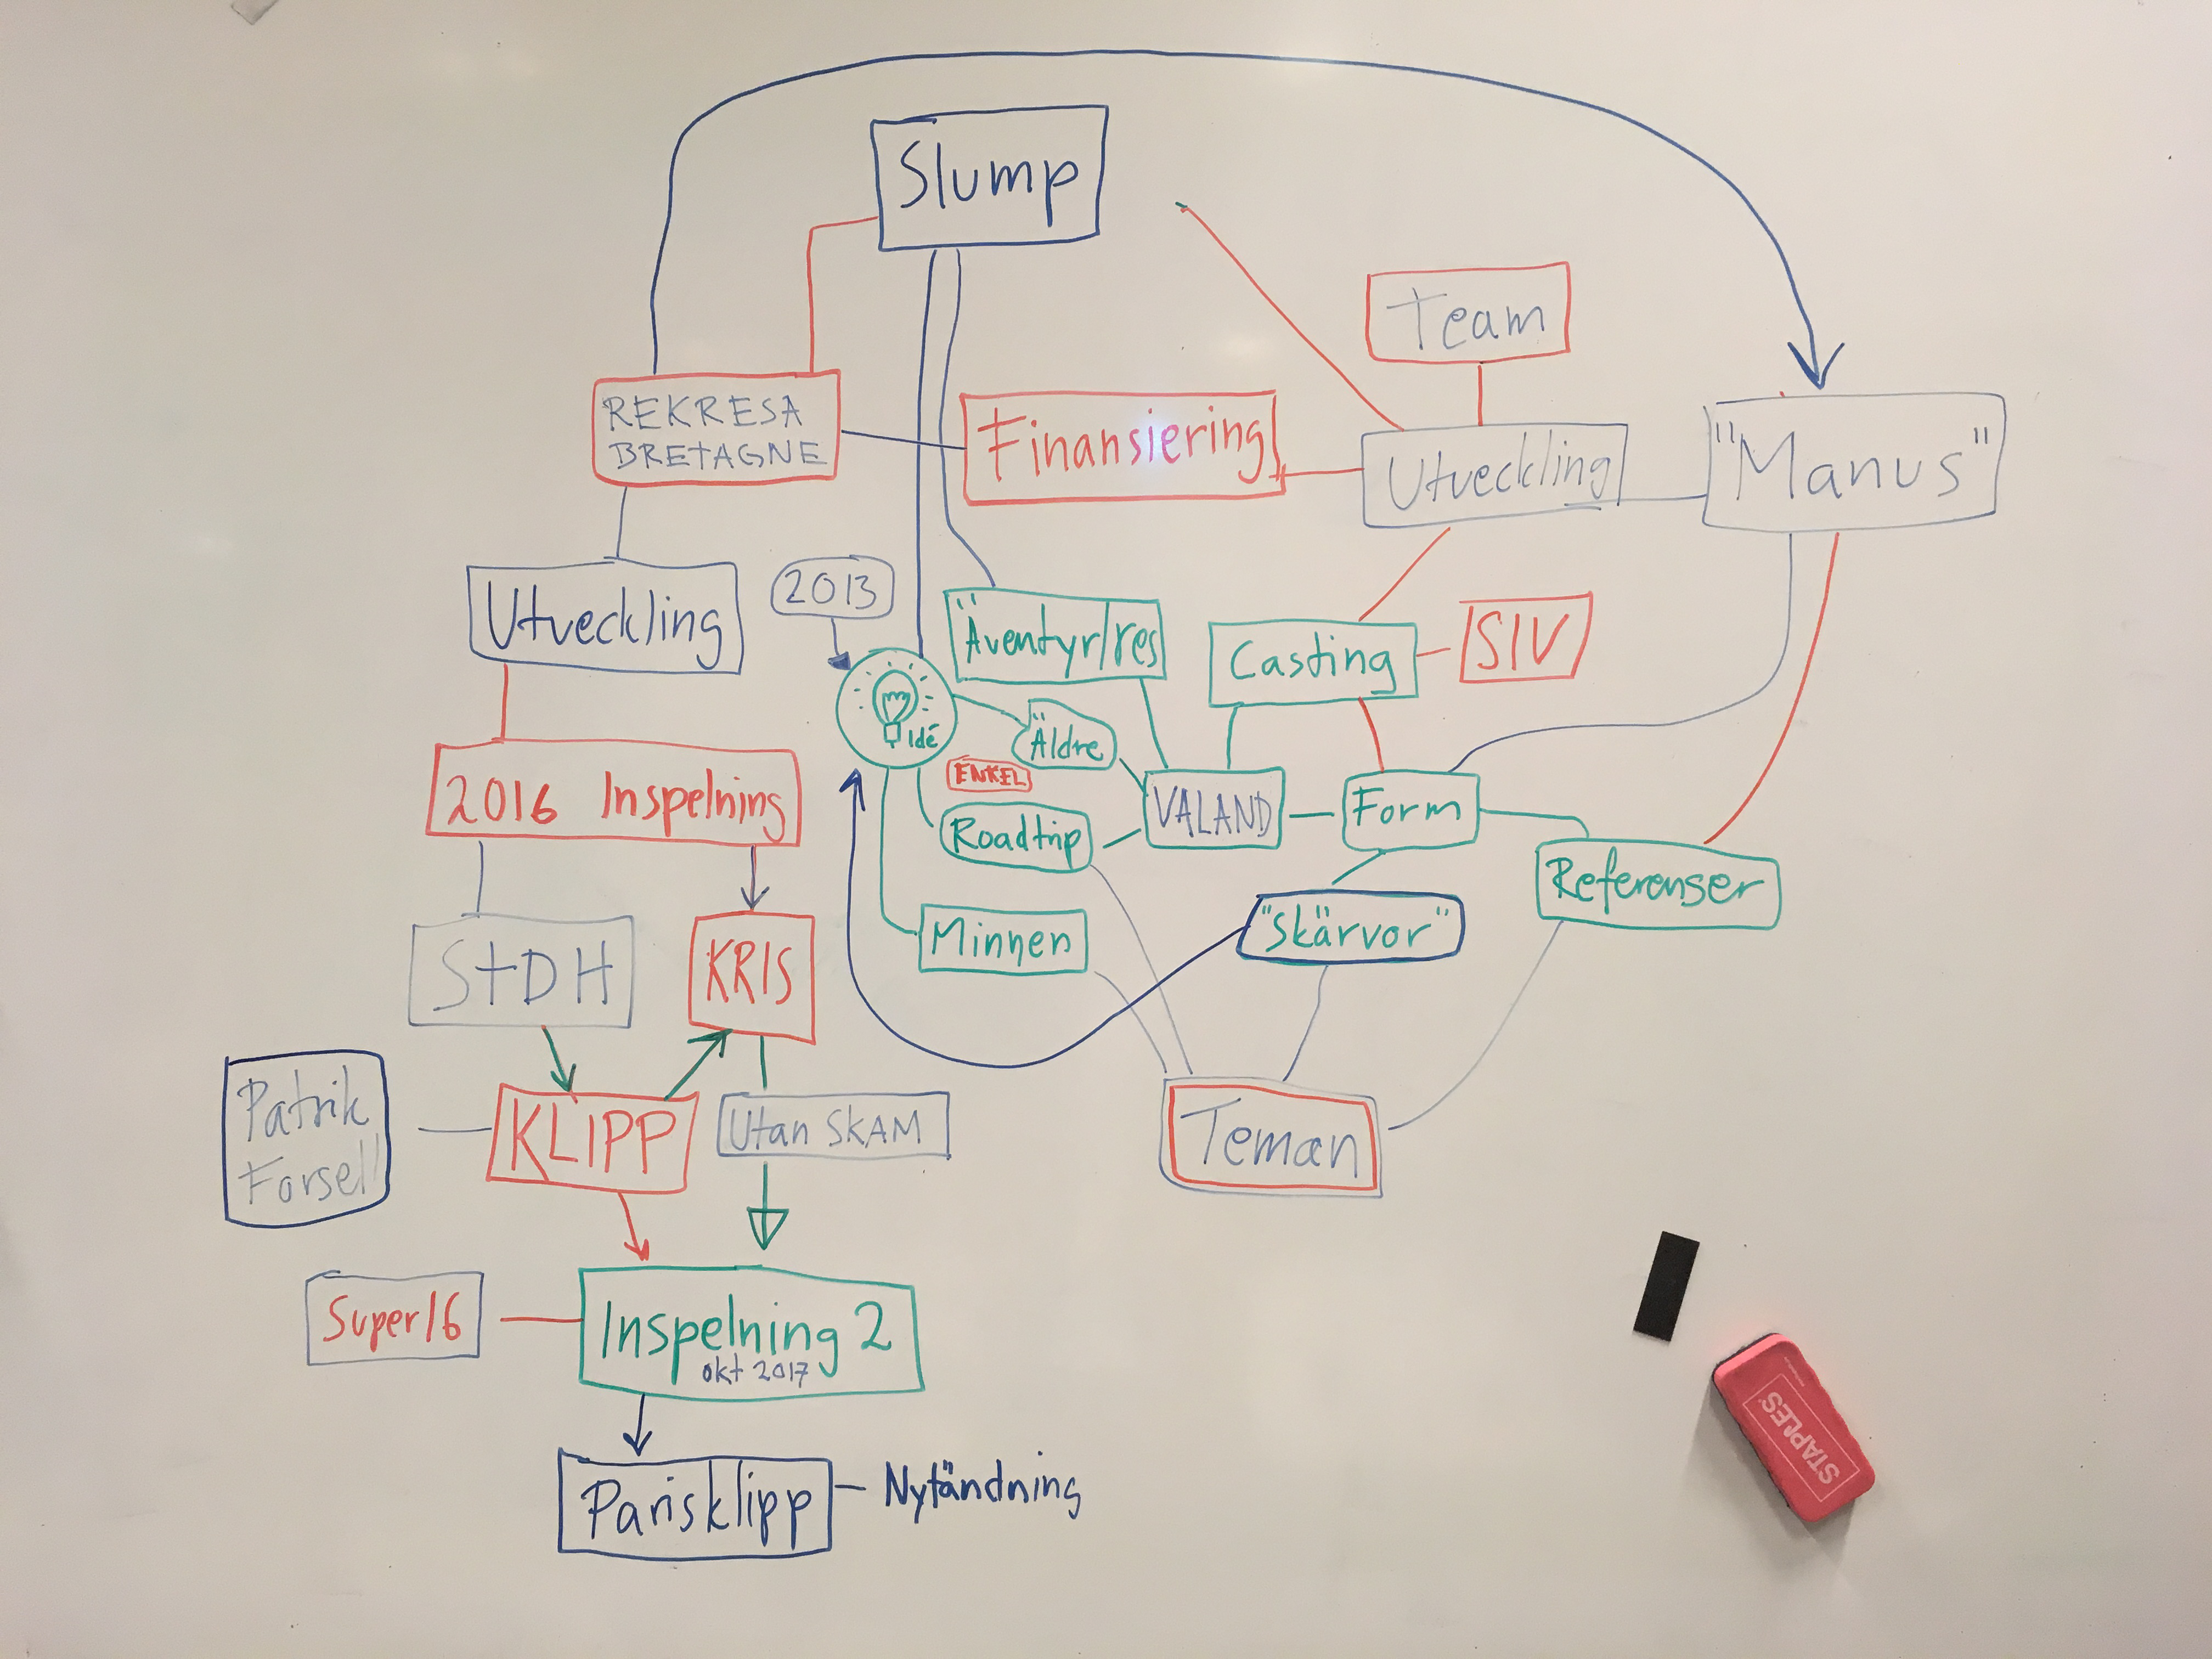 Slump
Team
REKRESA
BRETAGNE
Finansiering
Utveckling
"Manus"
2013
Utveckling
Äventyr/res
Casting
SIV
Idé
Äldre
ENKEL
2016 Inspelning
VALAND
Form
Roadtrip
Referenser
Minnen
"Skärvor"
StDH
KRIS
Patrik
Forsell
KLIPP
Utan SKAM
Teman
Super16
Inspelning 2
okt 2017
Parisklipp
Nytändning
STAPLES